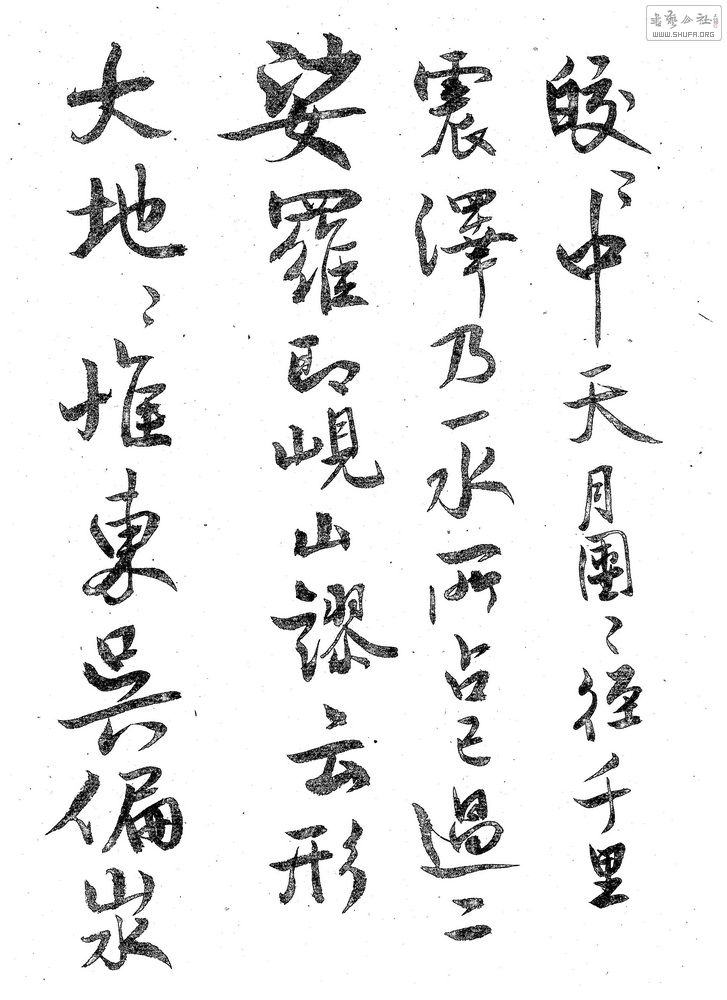 皎〻中天月團〻徑千里
震澤乃一水所占已過二
娑羅即峴山謬云形
大地〻惟東吳偏山水
書藝公社
WWW.SHUFA.ORG